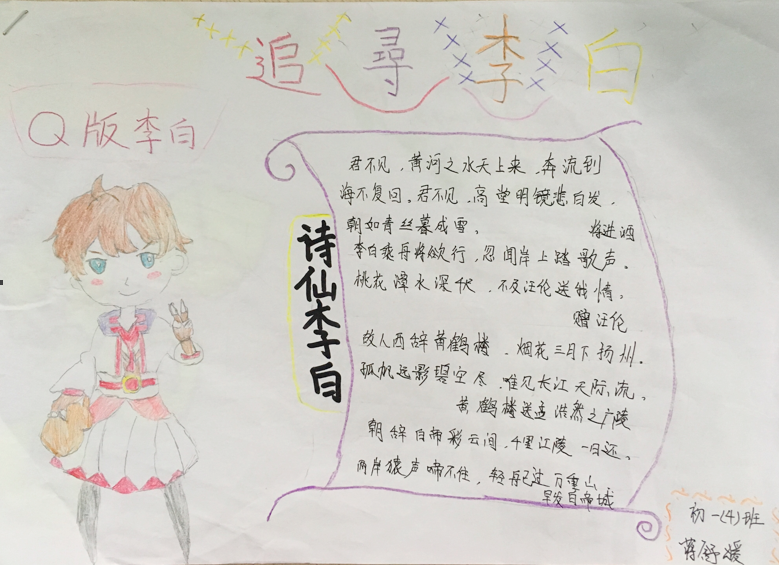 追寻李白
Q版李白
诗仙李白
君不见,黄河之水天上来,奔流到
海不复回。君不见,高堂明镜悲白发,
朝如青丝暮成雪。
将进酒
李白乘舟将欲行,忽闻岸上踏歌声。
桃花潭水深伏,不及汪伦送我情。
赠汪伦
故人西辞黄鹤楼,烟花三月下扬州.
孤帆远影碧空尽,唯见长江天际流。
黄鹤楼送孟浩然之广陵
朝辞白帝彩云间,千里江陵一日还。
两岸猿声啼不住,轻舟已过万重山
早发白帝城
初一(4)班
蒋舒媛